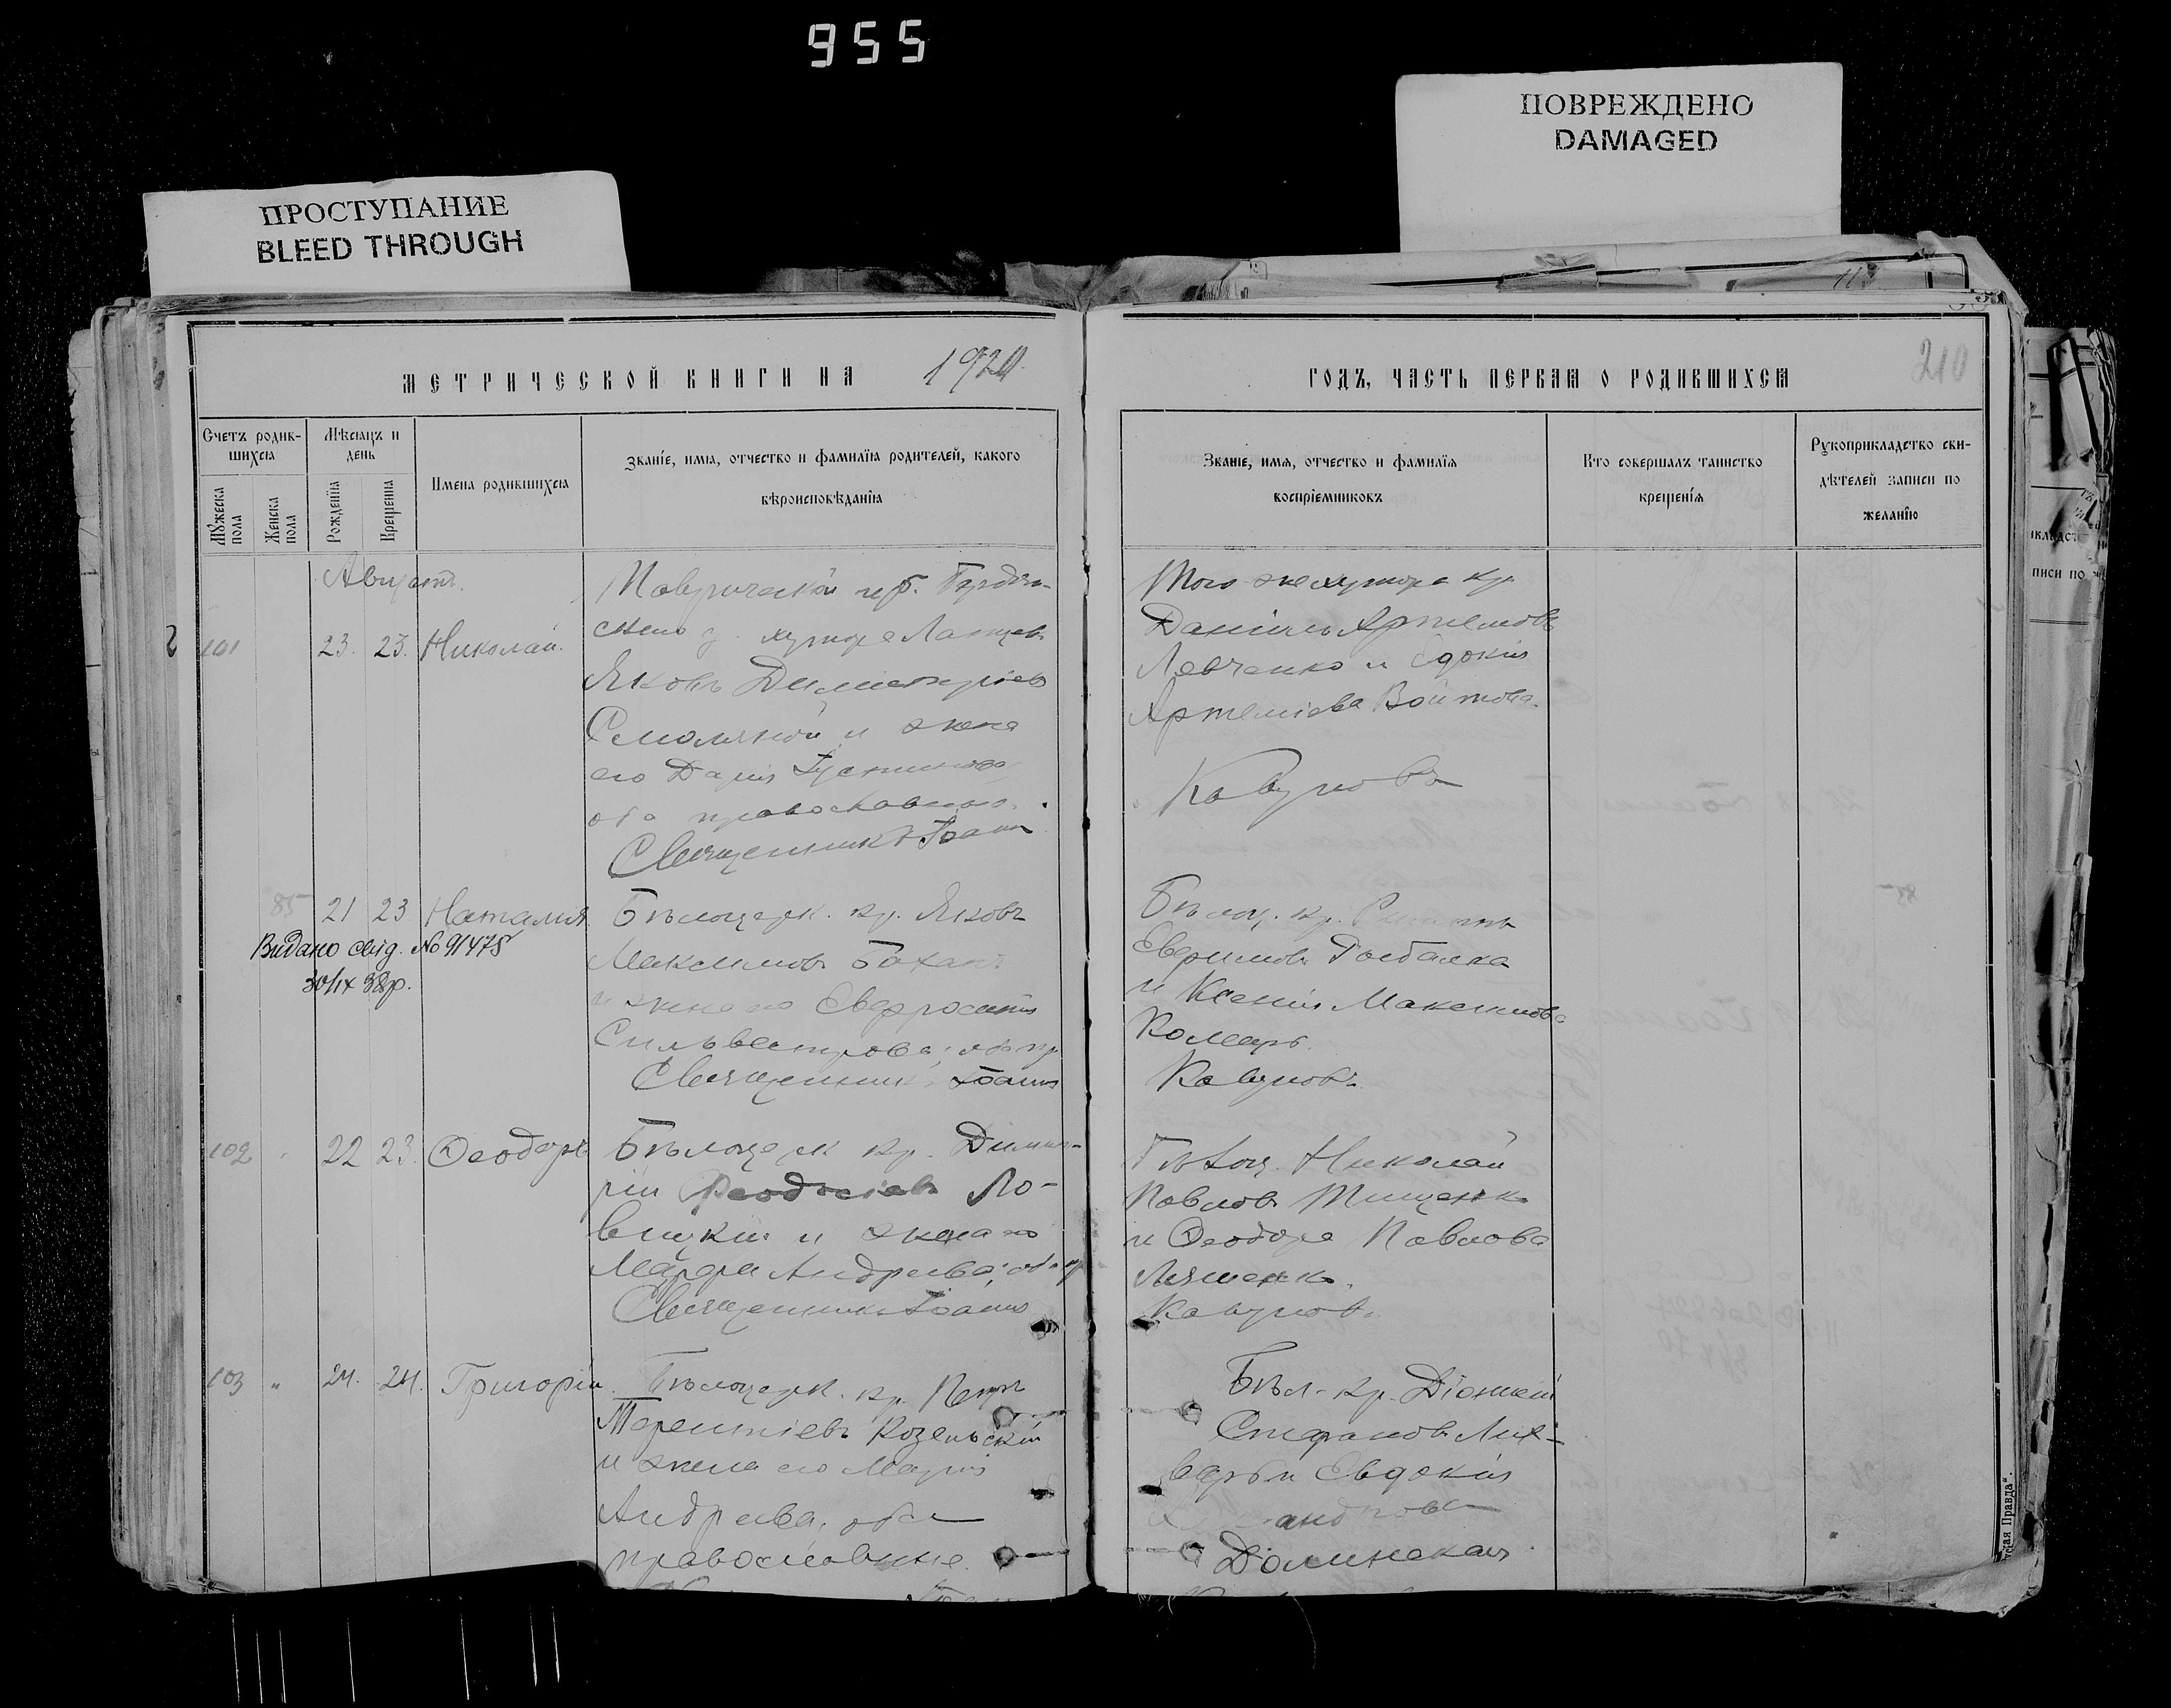 955
ПОВРЕЖДЕНО
DAMAGED
ПРОСТУПАНИЕ
BLEED THROUGH
113
МЕТРИЧЕСКОЙ КНИГИ НА 1920
ГОДЪ, ЧАСТЬ ПЕРВАЯ О РОДИВШИХСЯ
210
Счетъ родив-
шихся
Мужеска
пола
Женска
пола
Мѣсяцъ и
день
Рожденія
Крещенія
Имена родившихся
Званіе, имя, отчество и фамилія родителей, какого
вѣроисповѣданія
Званіе, имя, отчество и фамилія
воспріемниковъ
Кто совершалъ таинство
крещенія
Рукоприкладство сви-
дѣтелей записи по
желанію
Августъ.
101 23. 23. Николай.
Таврической губ. Бердян-
скаго у. хутора
Яковъ Димитріев
и жена
его Дарія
оба православные.
Священникъ Іоаннъ
Того же хутора кр.
Даніилъ Артемовъ
Левченко и Евдокия
Артеміева Войтова.
Кавуновъ
85 21 23 Наталия
Видано свід. № 91475
30/ix 38р.
Бѣлоцерк. кр. Яковъ
Максимовъ
и жена его Евфросинія
Сильвестрова; оба пр.
Священникъ Іоаннъ
Бѣлоц. кр.
и Ксенія Максимова
Комарь.
Кавуновъ.
102 22 23 Ѳеодоръ
Бѣлоцерк кр. Димит-
рій Ѳеодосіевъ Ло-
вицкій и жена его
Марфа Андреева; оба пр
Священникъ Іоаннъ
Бѣлоц. Николай
Павловъ Тищенко
и Ѳеодора Павлова
Ляшенко.
Кавуновъ.
103 " 24. 24. Григорій.
Бѣлоцерк. кр. Петръ
Терентіевъ Козельскій
и жена его Марія
Андреева, оба
православные.
Бѣл. кр. Діонисій
Стефановъ Лих-
варь и Евдокія
Долинская.